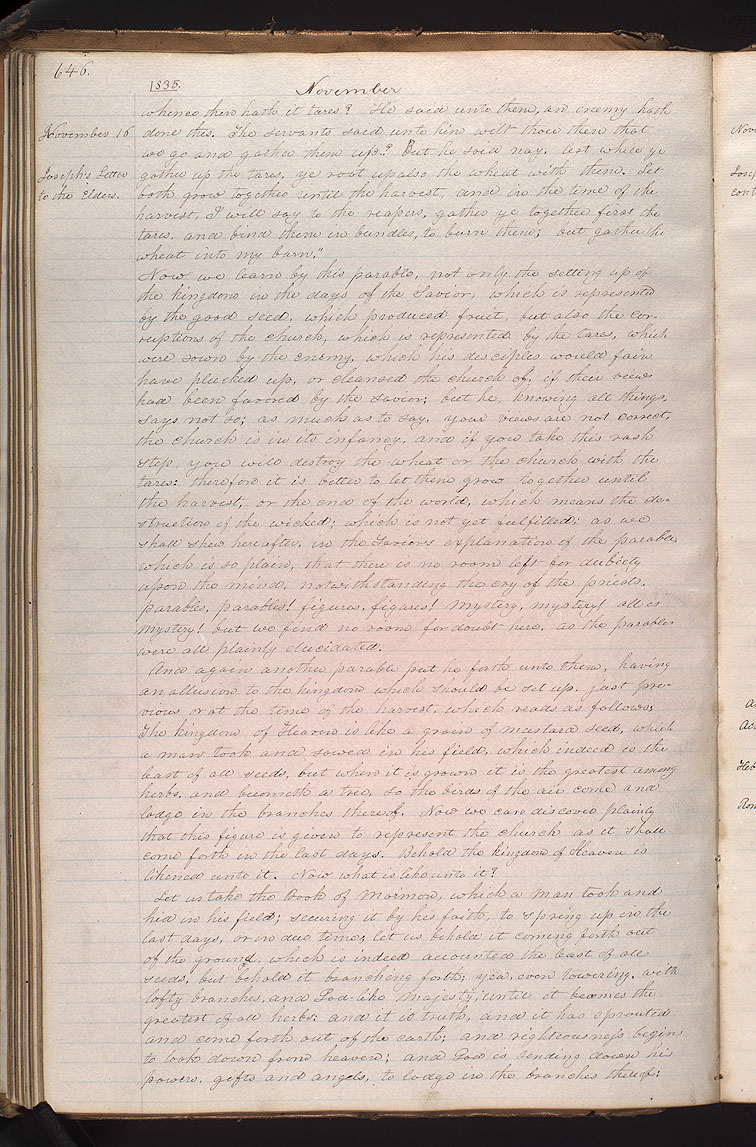 646.
1835.
November
whence then hath it tares? He said unto them, an enemy hath
November 16
done this. The servants said unto him wilt thou then that
we go and gather them up? But he said nay, lest while ye
Joseph's Letter
gather up the tares, ye root up also the wheat with them. Let
to the Elders.
both grow together until the harvest, and in the time of the
harvest, I will say to the reapers, gather ye together first the
tares. and bind them in bundles, to burn them; but gather the
wheat into my barn."
Now we learn by this parable, not only the setting up of
the kingdom in the days of the Savior, which is represented
by the good seed, which produced fruit, but also the cor-
ruptions of the church, which is represented by the tares, which
were sown by the enemy, which his desciples would fain
have plucked up, or cleansed the church of, if their views
had been favored by the Savior; but he, knowing all things,
says not so; as much as to say, your views are not correct,
the church is in its infancy, and if you take this rash
step, you will destroy the wheat or the church with the
tares: therefore it is better to let them grow together until
the harvest, or the end of the world, which means the de-
struction of the wicked; which is not yet fulfilled; as we
shall shew hereafter, in the Saviors explanation of the parable,
which is so plain, that there is no room left for dubiety
upon the mind, notwithstanding the cry of the priests,
parables, parables! figures, figures! mystery, mystery! all is
mystery! but we find no room for doubt here, as the parables
were all plainly elucidated.
And again another parable put he forth unto them, having
an allusion to the kingdom which should be set up, just pre-
vious or at the time of the harvest, which reads as follows;
The kingdom of Heaven is like a grain of mustard seed, which
a man took and sowed in his field, which indeed is the
least of all seeds, but when it is grown it is the greatest among
herbs, and becometh a tree, so the birds of the air come and
lodge in the branches thereof. Now we can discover plainly
that this figure is given to represent the church as it shall
come forth in the last days. Behold the kingdom of Heaven is
likened unto it. Now what is like unto it?
Let us take the Book of Mormon, which a man took and
hid in his field; securing it by his faith, to spring up in the
last days, or in due time; let us behold it coming forth out
of the ground, which is indeed accounted the least of all
seeds, but behold it branching forth; yea, even towering, with
lofty branches, and God-like majesty, until it becomes the
greatest of all herbs: and it is truth, and it has sprouted
and come forth out of the earth; and righteousness begins
to look down from heaven; and God is sending down his
powers, gifts and angels, to lodge in the branches thereof: